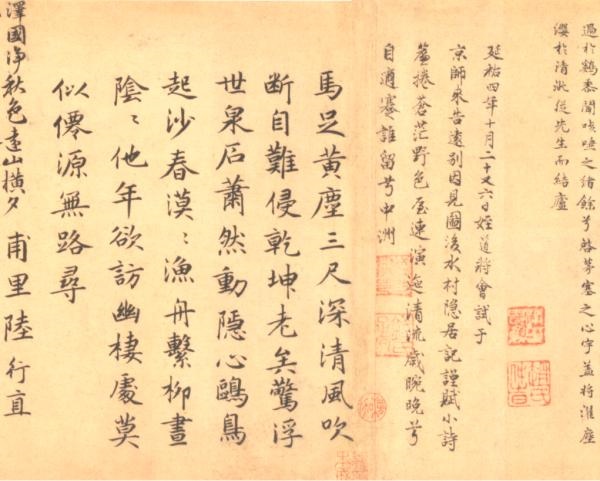 過於鷄黍聞咳唾之緒餘兮啓茅塞之心宇蓋將濯塵
纓於清泚從先生而結廬
延祐四年十月二十又六日姪道將會試于
京師來告遠別因見圖後水村隱居記謹賦小詩
簾捲蒼茫野色屋連演迤清流歲晼晚兮
自適蹇誰留兮中洲
馬足黃塵三尺深清風吹
断自難侵乾坤老矣驚浮
世泉石蕭然動隱心鷗鳥
起沙春漠〻漁舟繫柳晝
陰〻他年欲訪幽棲處莫
似僊源無路尋
甫里陸行直
澤國淨秋色遠山橫夕